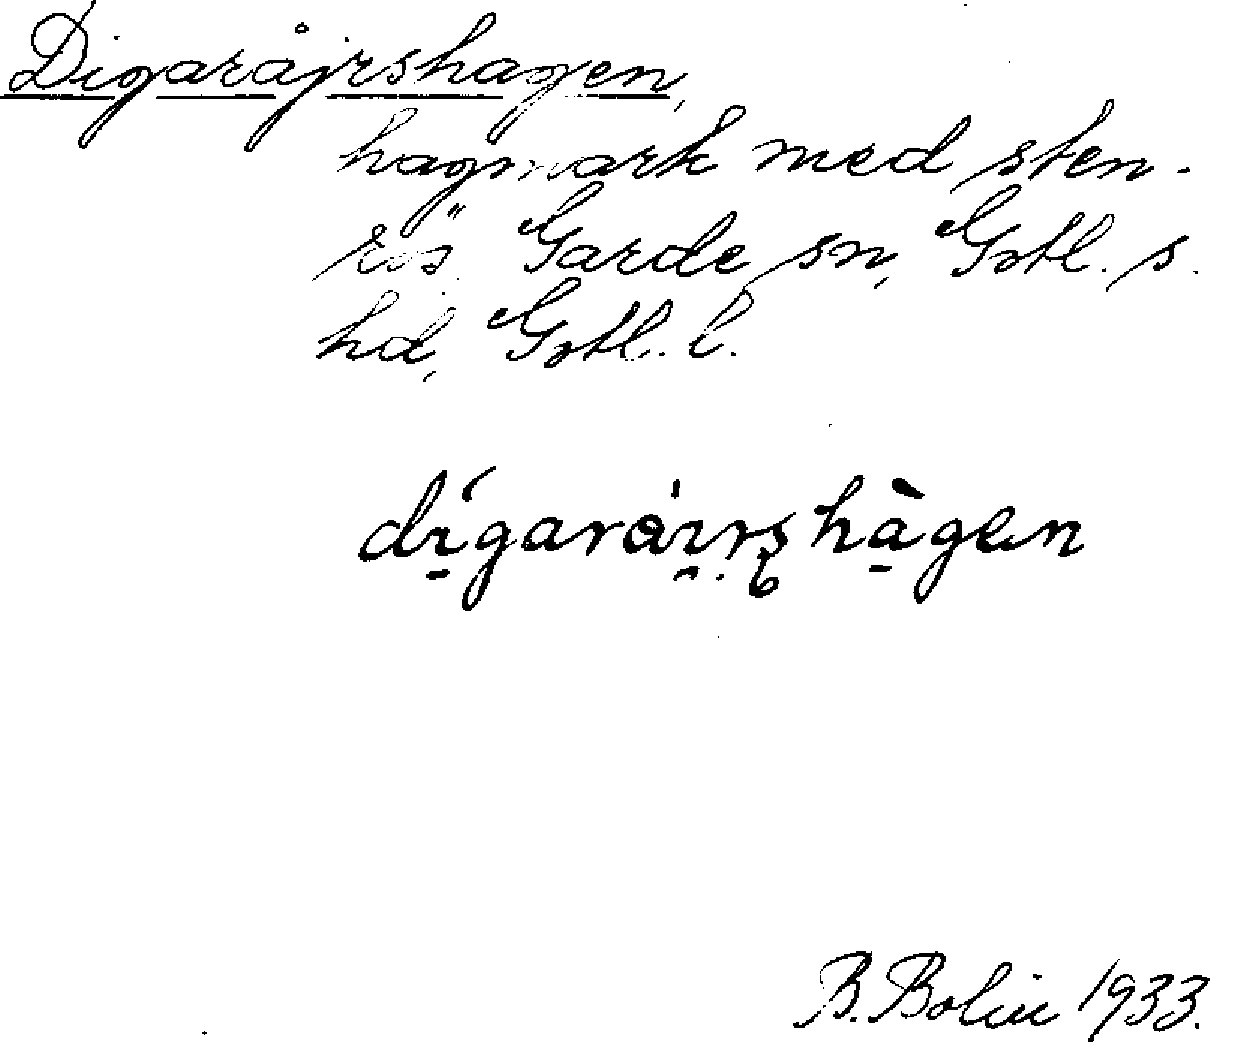 Digaråjrshagen,
hagmark med sten-
rös. Garde sn, Gotl. s.
hd, Gotl. l.
dígaråi̯rshàgen
B. Bolin 1933.